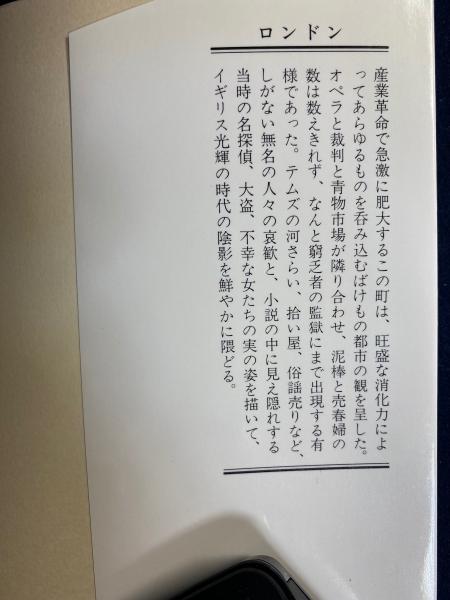 ロンドン
産業革命で急激に肥大するこの町は、旺盛な消化力によ
ってあらゆるものを呑み込むばけもの都市の観を呈した。
オペラと裁判と青物市場が隣り合わせ、泥棒と売春婦の
数は数えきれず、なんと窮乏者の監獄にまで出現する有
様であった。テムズの河さらい、拾い屋、俗謡売りなど、
しがない無名の人々の哀歓と、小説の中に見え隠れする
当時の名探偵、大盗、不幸な女たちの実の姿を描いて、
イギリス光輝の時代の陰影を鮮やかに隈どる。